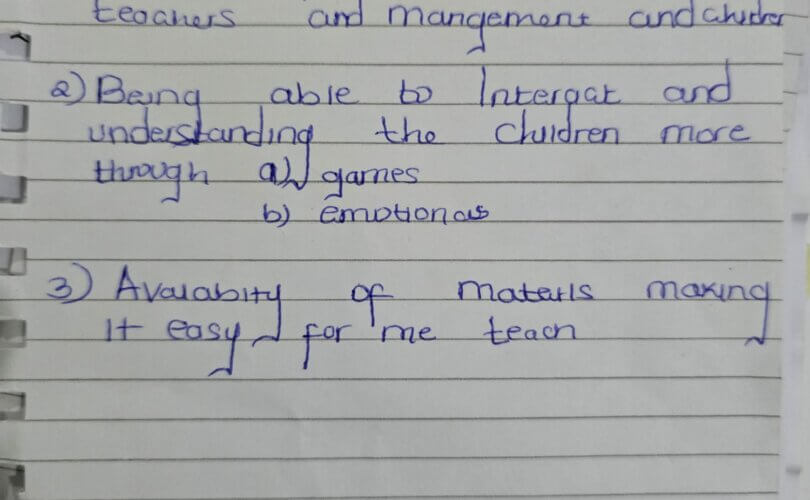 teachers and mangement and children
2) Being able to Intergat and
understanding the children more
through a) games
b) emotionas
3) Avalabity of materls making
It easy for me teach